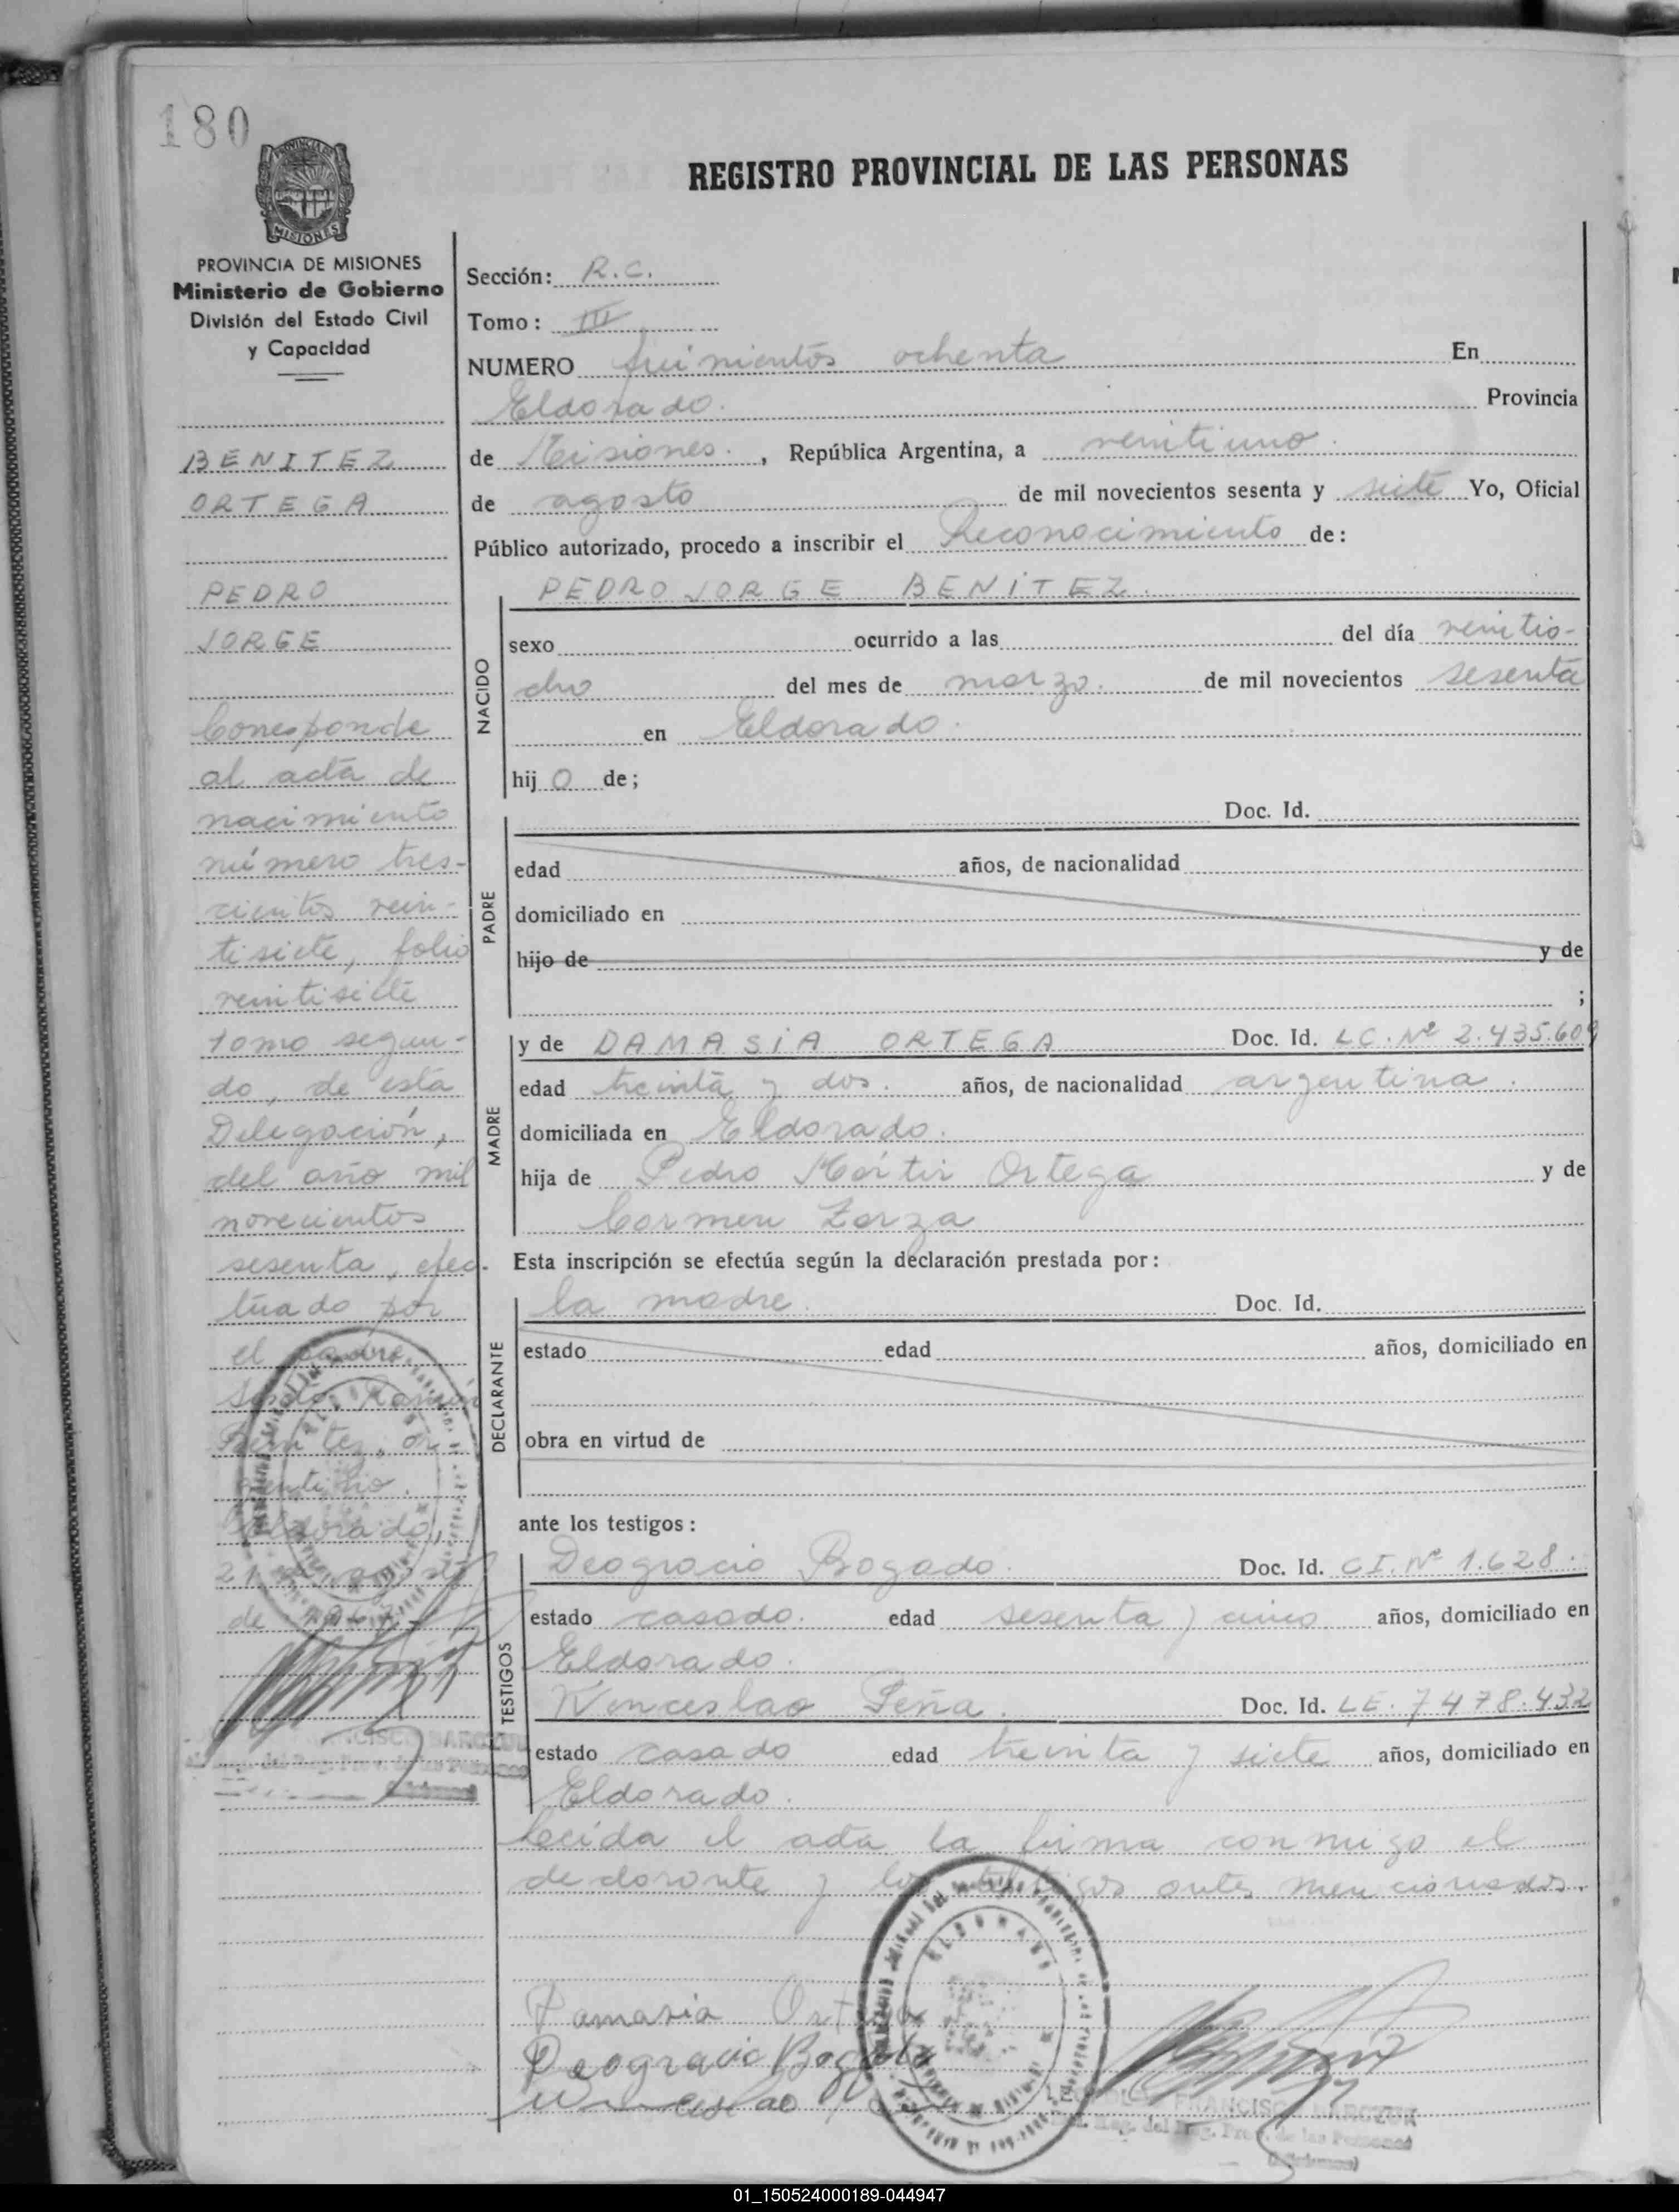 180
REGISTRO PROVINCIAL DE LAS PERSONAS
PROVINCIA DE MISIONES
Ministerio de Gobierno
División del Estado Civil
y Capacidad
BENITEZ
ORTEGA
PEDRO
JORGE
Corresponde
al acta de
nacimiento
número tres-
cientos vein-
tisiete, folio
veintisiete
tomo segun-
do, de esta
Delegación,
del año mil
novecientos
sesenta, efec-
tuado por
el padre,
Ramón
Benitez, ar-
gentino.
Eldorado,
21 de agosto
de 1967
Sección: R.C.
Tomo: III
NUMERO quinientos ochenta En
Eldorado. Provincia
de Misiones. , República Argentina, a veintiuno.
de agosto de mil novecientos sesenta y siete Yo, Oficial
Público autorizado, procedo a inscribir el Reconocimiento de:
NACIDO
PEDRO JORGE BENITEZ.
sexo ocurrido a las del día veintio-
cho del mes de marzo. de mil novecientos sesenta
en Eldorado.
hijo de;
PADRE
Doc. Id.
edad años, de nacionalidad
domiciliado en
hijo de y de
;
MADRE
y de DAMASIA ORTEGA Doc. Id. LC. Nº 2.435.609
edad treinta y dos. años, de nacionalidad argentina.
domiciliada en Eldorado.
hija de Pedro Mártir Ortega y de
Carmen Zarza
Esta inscripción se efectúa según la declaración prestada por:
DECLARANTE
la madre. Doc. Id.
estado edad años, domiciliado en
obra en virtud de
ante los testigos:
TESTIGOS
Deogracio Bogado. Doc. Id. CI. Nº 1.628.
estado casado. edad sesenta y cinco años, domiciliado en
Eldorado.
Wenceslao Peña. Doc. Id. LE. 7478.432
estado casado edad treinta y siete años, domiciliado en
Eldorado.
Leída el acta la firma conmigo el
declarante y los testigos antes mencionados.
Damasia Ortega
Deogracio Bogado
FRANCISCO
del Reg. Prov. de las Personas
01_150524000189-044947